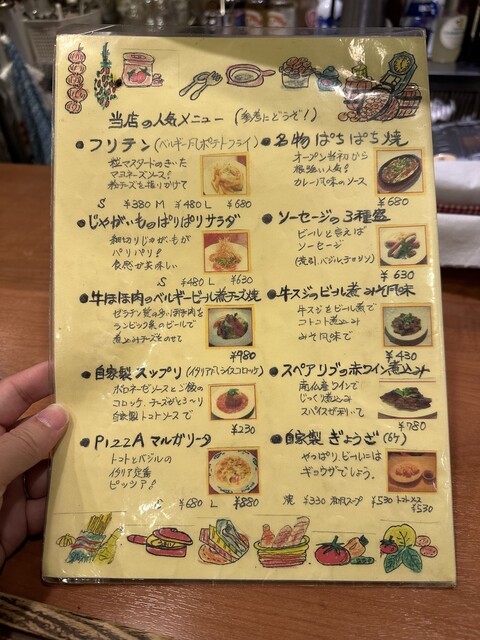 当店の人気メニュー (参考にどうぞ!)
●フリテン(ベルギー風ポテトフライ)
粒マスタードのきいた
マヨネーズソース!
粉チーズを振りかけて
S ¥380 M ¥480 L ¥680
●じゃがいものぱりぱりサラダ
細切りじゃがいもが
パリパリ!
食感が美味しい
S ¥480 L ¥630
●牛ほほ肉のベルギービール煮チーズ焼
ゼラチン質の多いほほ肉を
ランビック系のビールで
煮込みチーズをのせて
¥980
●自家製スップリ(イタリア風ライスコロッケ)
ボロネーゼソースとご飯の
コロッケ、チーズがとろ〜り
自家製トマトソースで
¥230
●PIZZA マルガリータ
トマトとバジルの
イタリア定番
ピッツァ!
S ¥680 L ¥880
●名物ぱちぱち焼
オープン当初から
根強い人気!
カレー風味のソース
¥680
●ソーセージの3種盛
ビールと言えば
ソーセージ
(荒引、バジル、チョリソ)
¥630
●牛スジのビール煮 みそ風味
牛スジをビール煮で
コトコト煮込み
みそ風味で
¥430
●スペアリブの赤ワイン煮込み
南仏産ワインで
じっくり煮込み
スパイスが利いて
¥780
●自家製ぎょうざ(6ケ)
やっぱりビールには
ギョウザでしょう。
焼 ¥330 スープ ¥530 トマトソース
¥530